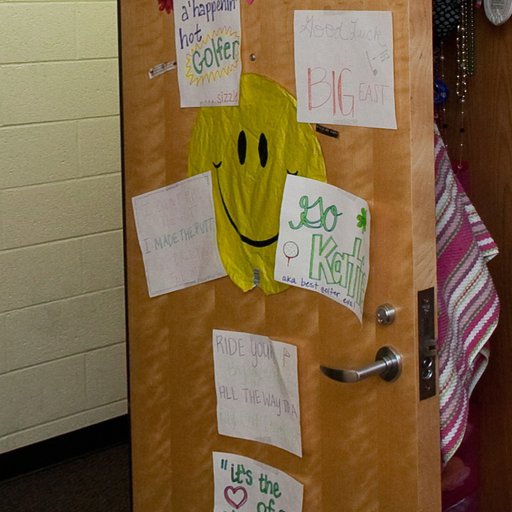 a'happenin'
hot
Golfer
....sizzl
Good Luck
BIG EAST
I MADE THE PUTT
Go
Kat
aka best golfer eva
RIDE YOUR
ALL THE WAY TO A
"it's the
of